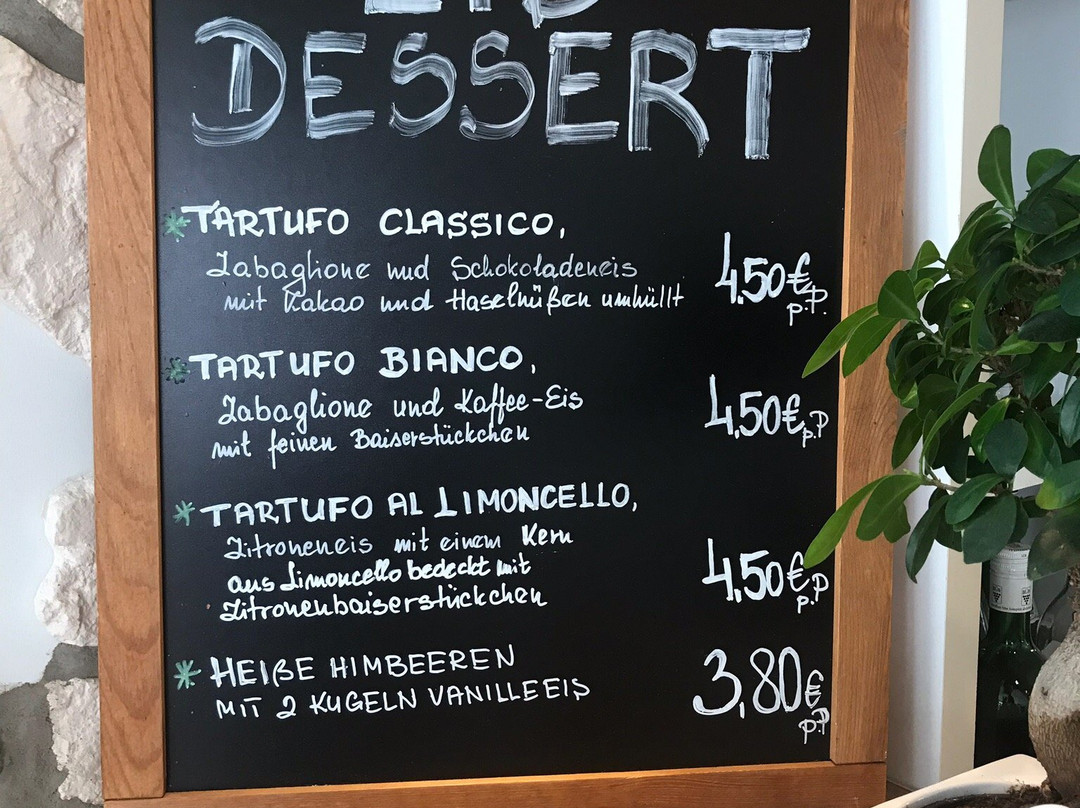 DESSERT
* TARTUFO CLASSICO,
Zabaglione und Schokoladeneis
mit Kakao und Haselnüßen umhüllt 4,50 € p.P.
* TARTUFO BIANCO,
Zabaglione und Kaffee-Eis
mit feinen Baiserstückchen 4,50 € p.P
* TARTUFO AL LIMONCELLO,
Zitroneneis mit einem Kern
aus Limoncello bedeckt mit
Zitronenbaiserstückchen 4,50 € p.P
* HEIßE HIMBEEREN
MIT 2 KUGELN VANILLEEIS 3,80 € p.P